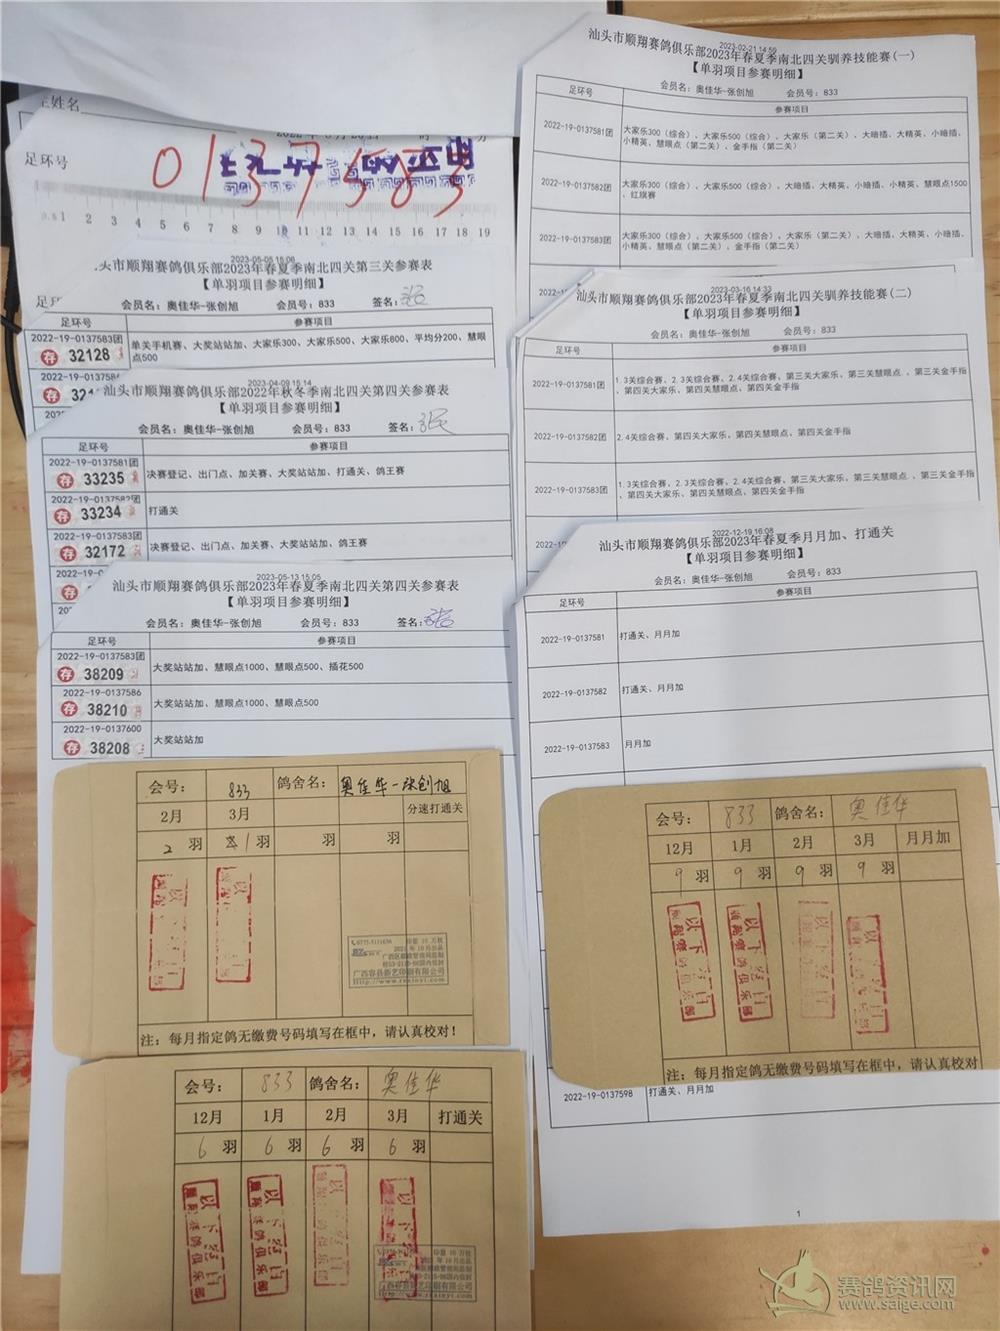 足环号
0137583
1 2 3 4 5 6 7 8 9 10 11 12 13 14 15 16 17 18 19
2023-05-05 15:06
市顺翔赛鸽俱乐部2023年春夏季南北四关第三关参赛表
【单羽项目参赛明细】
会员名：奥佳华-张创旭 会员号：833 签名：
足环号 参赛项目
2022-19-0137583团
存 32128
单关手机赛、大奖站站加、大家乐300、大家乐500、大家乐800、平均分200、慧眼
点500
2023-04-09 15:14
汕头市顺翔赛鸽俱乐部2022年秋冬季南北四关第四关参赛表
【单羽项目参赛明细】
会员名：奥佳华-张创旭 会员号：833 签名：
足环号 参赛项目
2022-19-0137581团
存 33235 决赛登记、出门点、加关赛、大奖站站加、打通关、鸽王赛
2022-19-0137582团
存 33234 打通关
2022-19-0137583团
存 32172 决赛登记、出门点、加关赛、大奖站站加、鸽王赛
2023-05-13 15:05
汕头市顺翔赛鸽俱乐部2023年春夏季南北四关第四关参赛表
【单羽项目参赛明细】
会员名：奥佳华-张创旭 会员号：833 签名：
足环号 参赛项目
2022-19-0137583团
存 38209 大奖站站加、慧眼点1000、慧眼点500、插花500
2022-19-0137586
存 38210 大奖站站加、慧眼点1000、慧眼点500
2022-19-0137600
存 38208 大奖站站加
会号： 833 鸽舍名： 奥佳华-张创旭
2月 3月 分速打通关
2 羽 1 羽 羽 羽
注：每月指定鸽无缴费号码填写在框中，请认真校对！
会号： 833 鸽舍名： 奥佳华
12月 1月 2月 3月 打通关
6 羽 6 羽 6 羽 6 羽
2023-02-21 14:56
汕头市顺翔赛鸽俱乐部2023年春夏季南北四关驯养技能赛(一)
【单羽项目参赛明细】
会员名：奥佳华-张创旭 会员号：833
足环号 参赛项目
2022-19-0137581团
大家乐300（综合）、大家乐500（综合）、大家乐（第二关）、大暗插、大精英、小暗插、
小精英、慧眼点（第二关）、金手指（第二关）
2022-19-0137582团
大家乐300（综合）、大家乐500（综合）、大暗插、大精英、小暗插、小精英、慧眼点1500
、红旗赛
2022-19-0137583团
大家乐300（综合）、大家乐500（综合）、大家乐（第二关）、大暗插、大精英、小暗插、
小精英、慧眼点（第二关）、金手指（第二关）
2023-03-16 14:33
汕头市顺翔赛鸽俱乐部2023年春夏季南北四关驯养技能赛(二)
【单羽项目参赛明细】
会员名：奥佳华-张创旭 会员号：833
足环号 参赛项目
2022-19-0137581团
1.3关综合赛、2.3关综合赛、2.4关综合赛、第三关大家乐、第三关慧眼点、第三关金手指
、第四关大家乐、第四关慧眼点、第四关金手指
2022-19-0137582团
2.4关综合赛、第四关大家乐、第四关慧眼点、第四关金手指
2022-19-0137583团
1.3关综合赛、2.3关综合赛、2.4关综合赛、第三关大家乐、第三关慧眼点、第三关金手指
、第四关大家乐、第四关慧眼点、第四关金手指
2022-12-19 16:08
汕头市顺翔赛鸽俱乐部2023年春夏季月月加、打通关
【单羽项目参赛明细】
会员名：奥佳华-张创旭 会员号：833
足环号 参赛项目
2022-19-0137581 打通关、月月加
2022-19-0137582 打通关、月月加
2022-19-0137583 月月加
会号： 833 鸽舍名： 奥佳华
12月 1月 2月 3月 月月加
9 羽 9 羽 9 羽 9 羽
注：每月指定鸽无缴费号码填写在框中，请认真校对
2022-19-0137598 打通关、月月加
1
赛鸽资讯网
www.saige.com